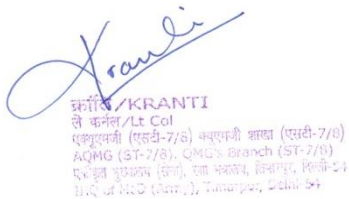 Kranti
क्रांति/KRANTI
ले कर्नल/Lt Col
एक्यूएमजी (एसटी-7/8) क्यूएमजी शाखा (एसटी-7/8)
AQMG (ST-7/8), QMG's Branch (ST-7/8)
एकीकृत मुख्यालय (सेना), रक्षा मंत्रालय, तिमारपुर, दिल्ली-54
of MoD (Army), Timarpur, Delhi-54